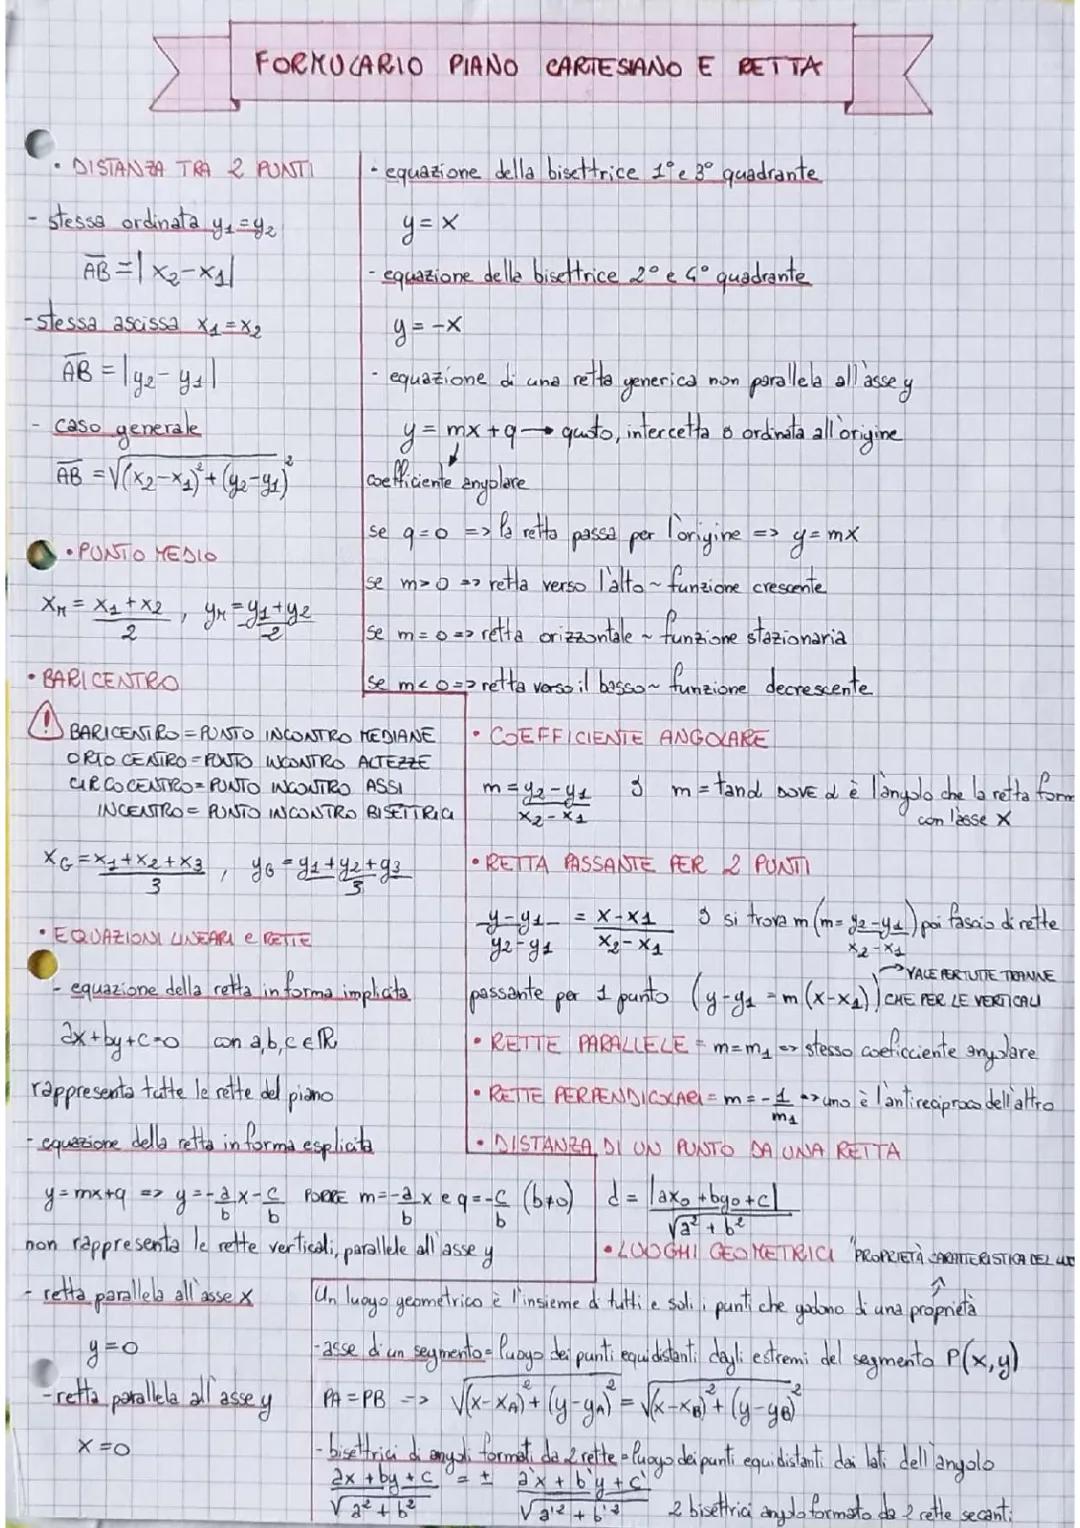 FORMULARIO PIANO CARTESIANO E RETTA
• DISTANZA TRA 2 PUNTI
- stessa ordinata y₁=y₂
AB = |x₂-x₁|
- stessa ascissa x₁=x₂
AB = |y₂-y₁|
- caso generale
AB = √(x₂-x₁)²+(y₂-y₁)²
• PUNTO MEDIO
xM = x₁+x₂/2 , yM = y₁+y₂/2
• BARICENTRO
! BARICENTRO = PUNTO INCONTRO MEDIANE
ORTOCENTRO = PUNTO INCONTRO ALTEZZE
CIRCOCENTRO = PUNTO INCONTRO ASSI
INCENTRO = PUNTO INCONTRO BISETTRICI
xG = x₁+x₂+x₃/3 , yG = y₁+y₂+y₃/3
• EQUAZIONI LINEARI e RETTE
- equazione della retta in forma implicita
ax+by+c=0 con a,b,c ∈ ℝ
rappresenta tutte le rette del piano
- equazione della retta in forma esplicita
y=mx+q => y=-a/b x-c/b PORRE m=-a/b x e q=-c/b (b≠0)
non rappresenta le rette verticali, parallele all'asse y
- retta parallela all'asse x
y=0
- retta parallela all'asse y
x=0
- equazione della bisettrice 1° e 3° quadrante
y=x
- equazione della bisettrice 2° e 4° quadrante
y=-x
- equazione di una retta generica non parallela all'asse y
y=mx+q → quoto, intercetta o ordinata all'origine
coefficiente angolare
se q=0 => la retta passa per l'origine => y=mx
se m>0 => retta verso l'alto ~ funzione crescente
se m=0 => retta orizzontale ~ funzione stazionaria
se m<0 => retta verso il basso ~ funzione decrescente
• COEFFICIENTE ANGOLARE
m = y₂-y₁/x₂-x₁ o m = tanα DOVE α è l'angolo che la retta forma
con l'asse x
• RETTA PASSANTE PER 2 PUNTI
y-y₁/y₂-y₁ = x-x₁/x₂-x₁ o si trova m (m=y₂-y₁/x₂-x₁) poi fascio di rette
→ VALE PER TUTTE TRANNE
passante per 1 punto (y-y₁=m(x-x₁)) CHE PER LE VERTICALI
• RETTE PARALLELE = m=m₁ => stesso coeficciente angolare
• RETTE PERPENDICOLARI = m=-1/m₁ => uno è l'antireciproco dell'altro
• DISTANZA DI UN PUNTO DA UNA RETTA
d = |ax₀+by₀+c|/√a²+b²
• LUOGHI GEOMETRICI "PROPRIETÀ CARATTERISTICA DEL
Un luogo geometrico è l'insieme di tutti e soli i punti che godono di una proprietà
- asse di un segmento = luogo dei punti equidistanti dagli estremi del segmento P(x,y)
PA=PB => √(x-xA)²+(y-yA)² = √(x-xB)²+(y-yB)²
- bisettrici di angoli formati da 2 rette = luogo dei punti equidistanti dai lati dell'angolo
ax+by+c/√a²+b² = ± a'x+b'y+c'/√a'²+b'² 2 bisettrici angolo formato da 2 rette secanti